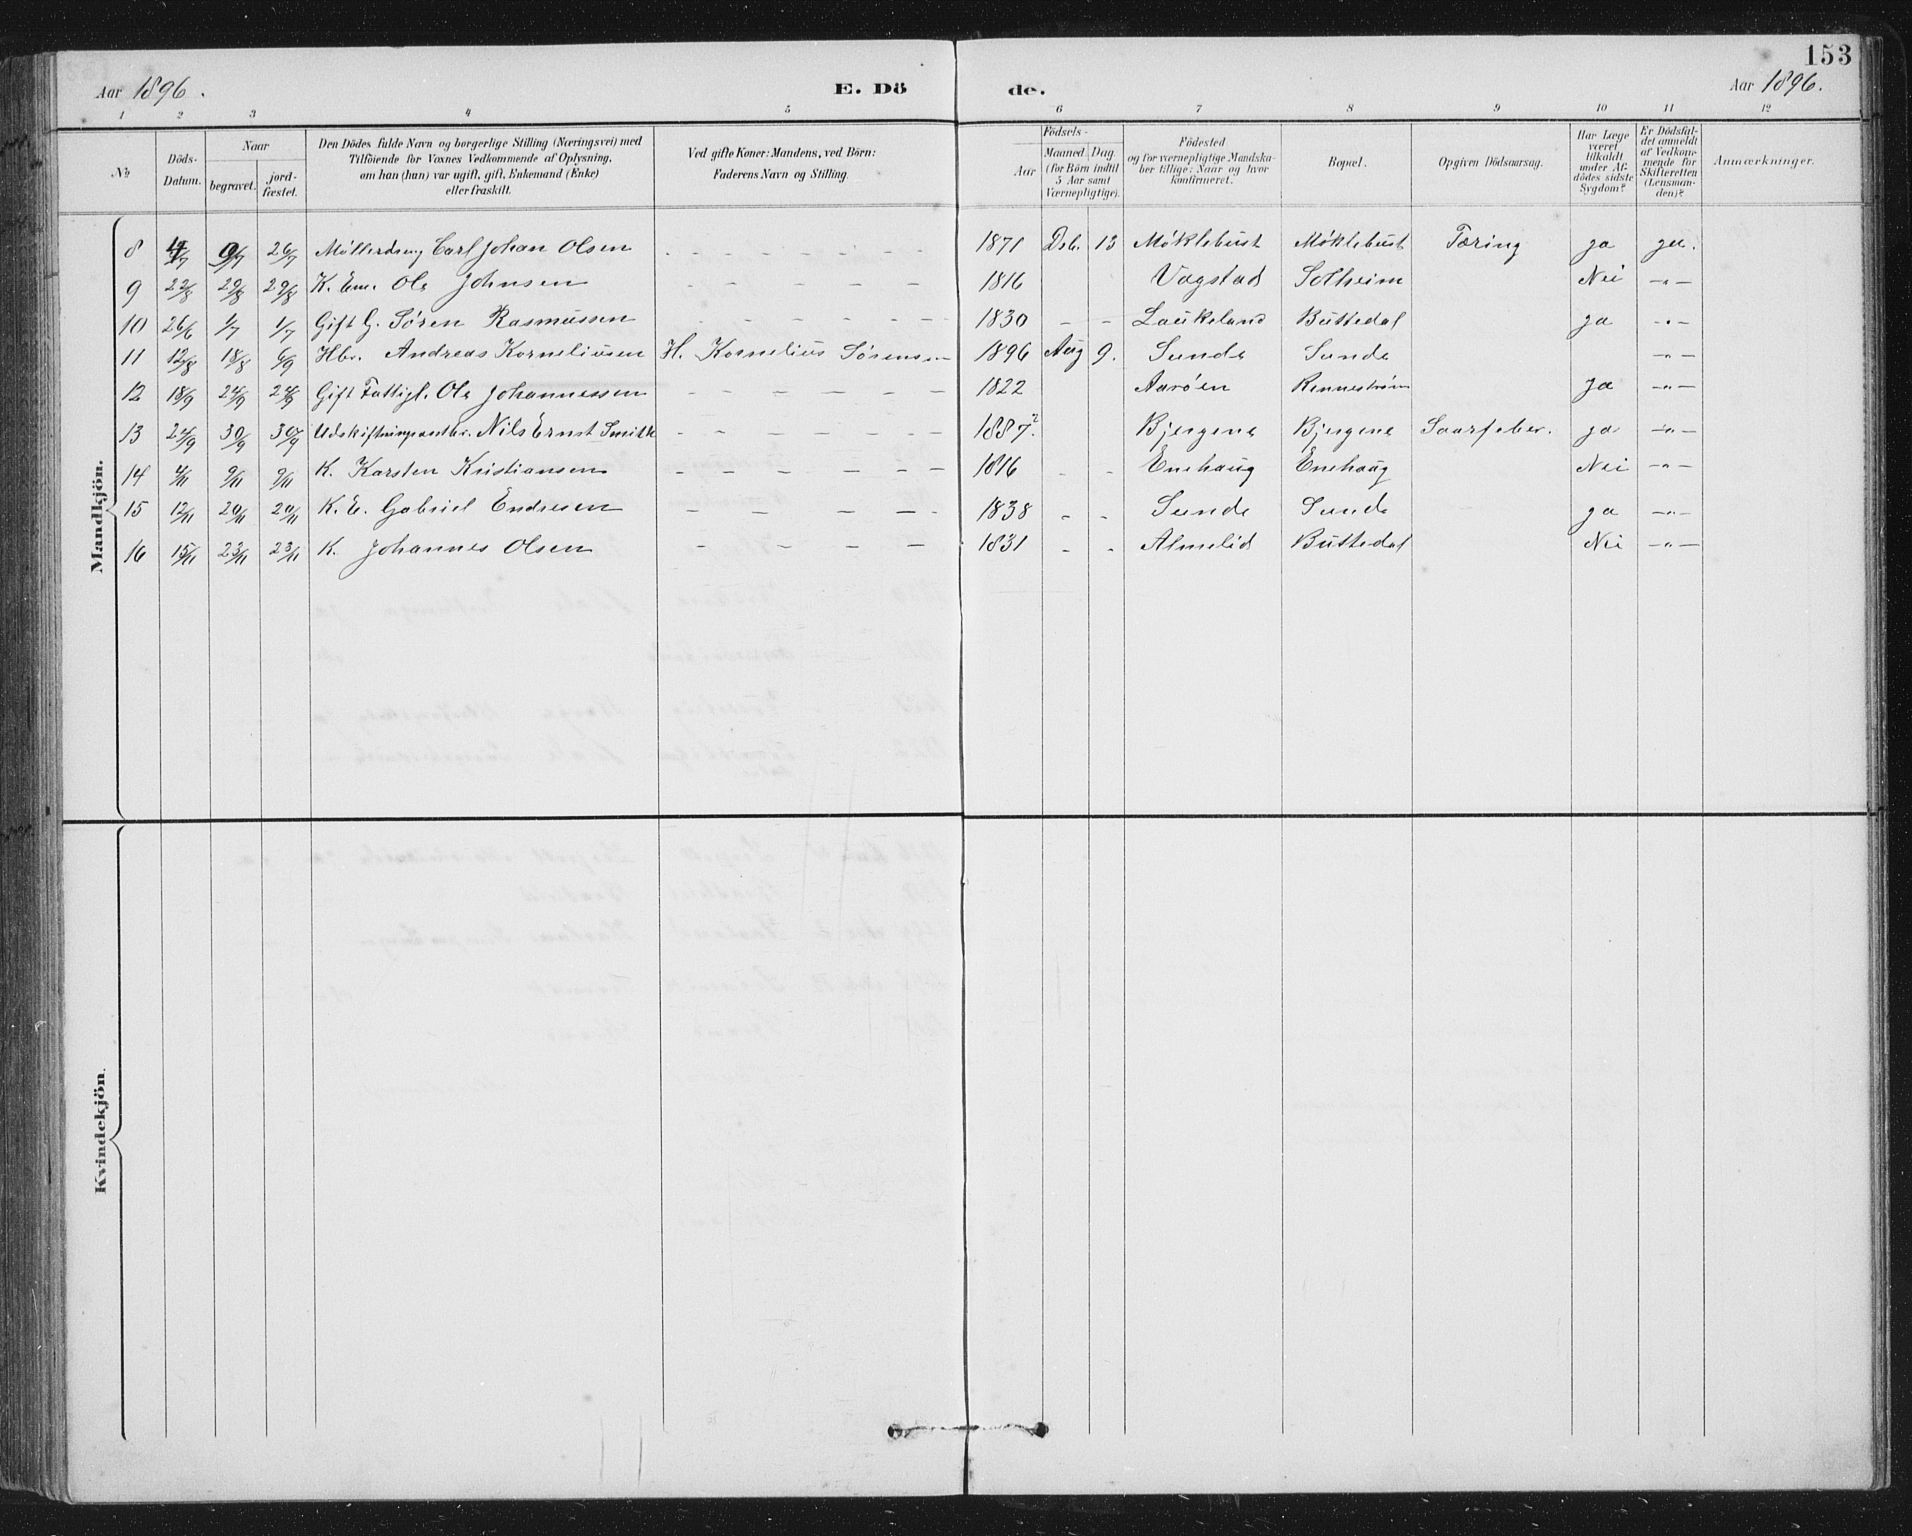 153
Aar 1896. E. Dö de. Aar 1896.
1 2 3 4 5 6 7 8 9 10 11 12
№ Döds-Datum. Naar begravet. jord-fæstet. Den Dödes fulde Navn og borgerlige Stilling (Næringsvei) med Tilföiende for Voxnes Vedkommende af Oplysning, om han (hun) var ugift, gift, Enkemand (Enke) eller fraskilt. Ved gifte Koner: Mandens, ved Börn: Faderens Navn og Stilling. Födsels- Aar Maaned Dag (for Börn indtil 5 Aar samt Værnepligtige). Födested og for værnepligtige Mandskaber tillige: Naar og hvor konfirmeret. Bopæl. Opgiven Dödsaarsag. Har Læge været tilkaldt under Afdödes sidste Sygdom? Er Dödsfaldet anmeldt af Vedkommende for Skifteretten (Lensmanden)? Anmærkninger.
Mandkjön.
8 26/7 Möllerdreng Carl Johan Olsen - - - - - 1871 Dsb. 13 Møklebust Møklebust Tæring ja ja.
9 22/8 29/8 29/8 K. Em. Ole Johnsen - - - - - 1816 Vagstad Solheim Nei -"-
10 26/6 1/7 1/7 Gift G. Sören Rasmussen - - - - - 1830 - - Laukeland Buttedal ja -"-
11 12/8 18/8 6/9 Hbr. Andreas Korneliusen H. Kornelius Sørensen 1896 Aug 9. Sunde Sunde -"-
12 18/9 24/9 24/9 Gift Fattigl. Ole Johannessen - - - - - 1822 Aarøen Rennestrøm ja -"-
13 24/9 30/9 30/9 Udskiftningsassbr. Nils Ernst Smith - - - - - 1887.? Bjergene Bjergene Saarfeber. ja -"-
14 4/11 9/11 9/11 K. Karsten Kristiansen - - - - - 1816 - - Enehaug Enehaug Nei -"-
15 12/11 20/11 20/11 K. E. Gabriel Endresen - - - - - 1838 - - Sunde Sunde ja -"-
16 15/11 23/11 23/11 K. Johannes Olsen - - - - 1831 - - Almelid Buttedal Nei -"-
Kvindekjön.